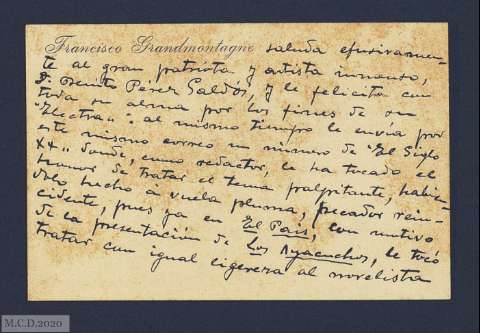 Francisco Grandmontagne saluda efusivamen-
te al gran patriota y artista inmenso,
D. Benito Pérez Galdós, y le felicita con
toda su alma por los fines de su
"Electra". al mismo tiempo le envía por
este mismo correo un número de "El Siglo
XX" donde, como redactor, le ha tocado el
honor de tratar el tema palpitante, habién-
dolo hecho á vuela pluma, pecador rein-
cidente, pues ya en El País, con motivo
de la presentación de Los Ayacuchos, le tocó
tratar con igual ligereza al novelista
M.C.D.2020